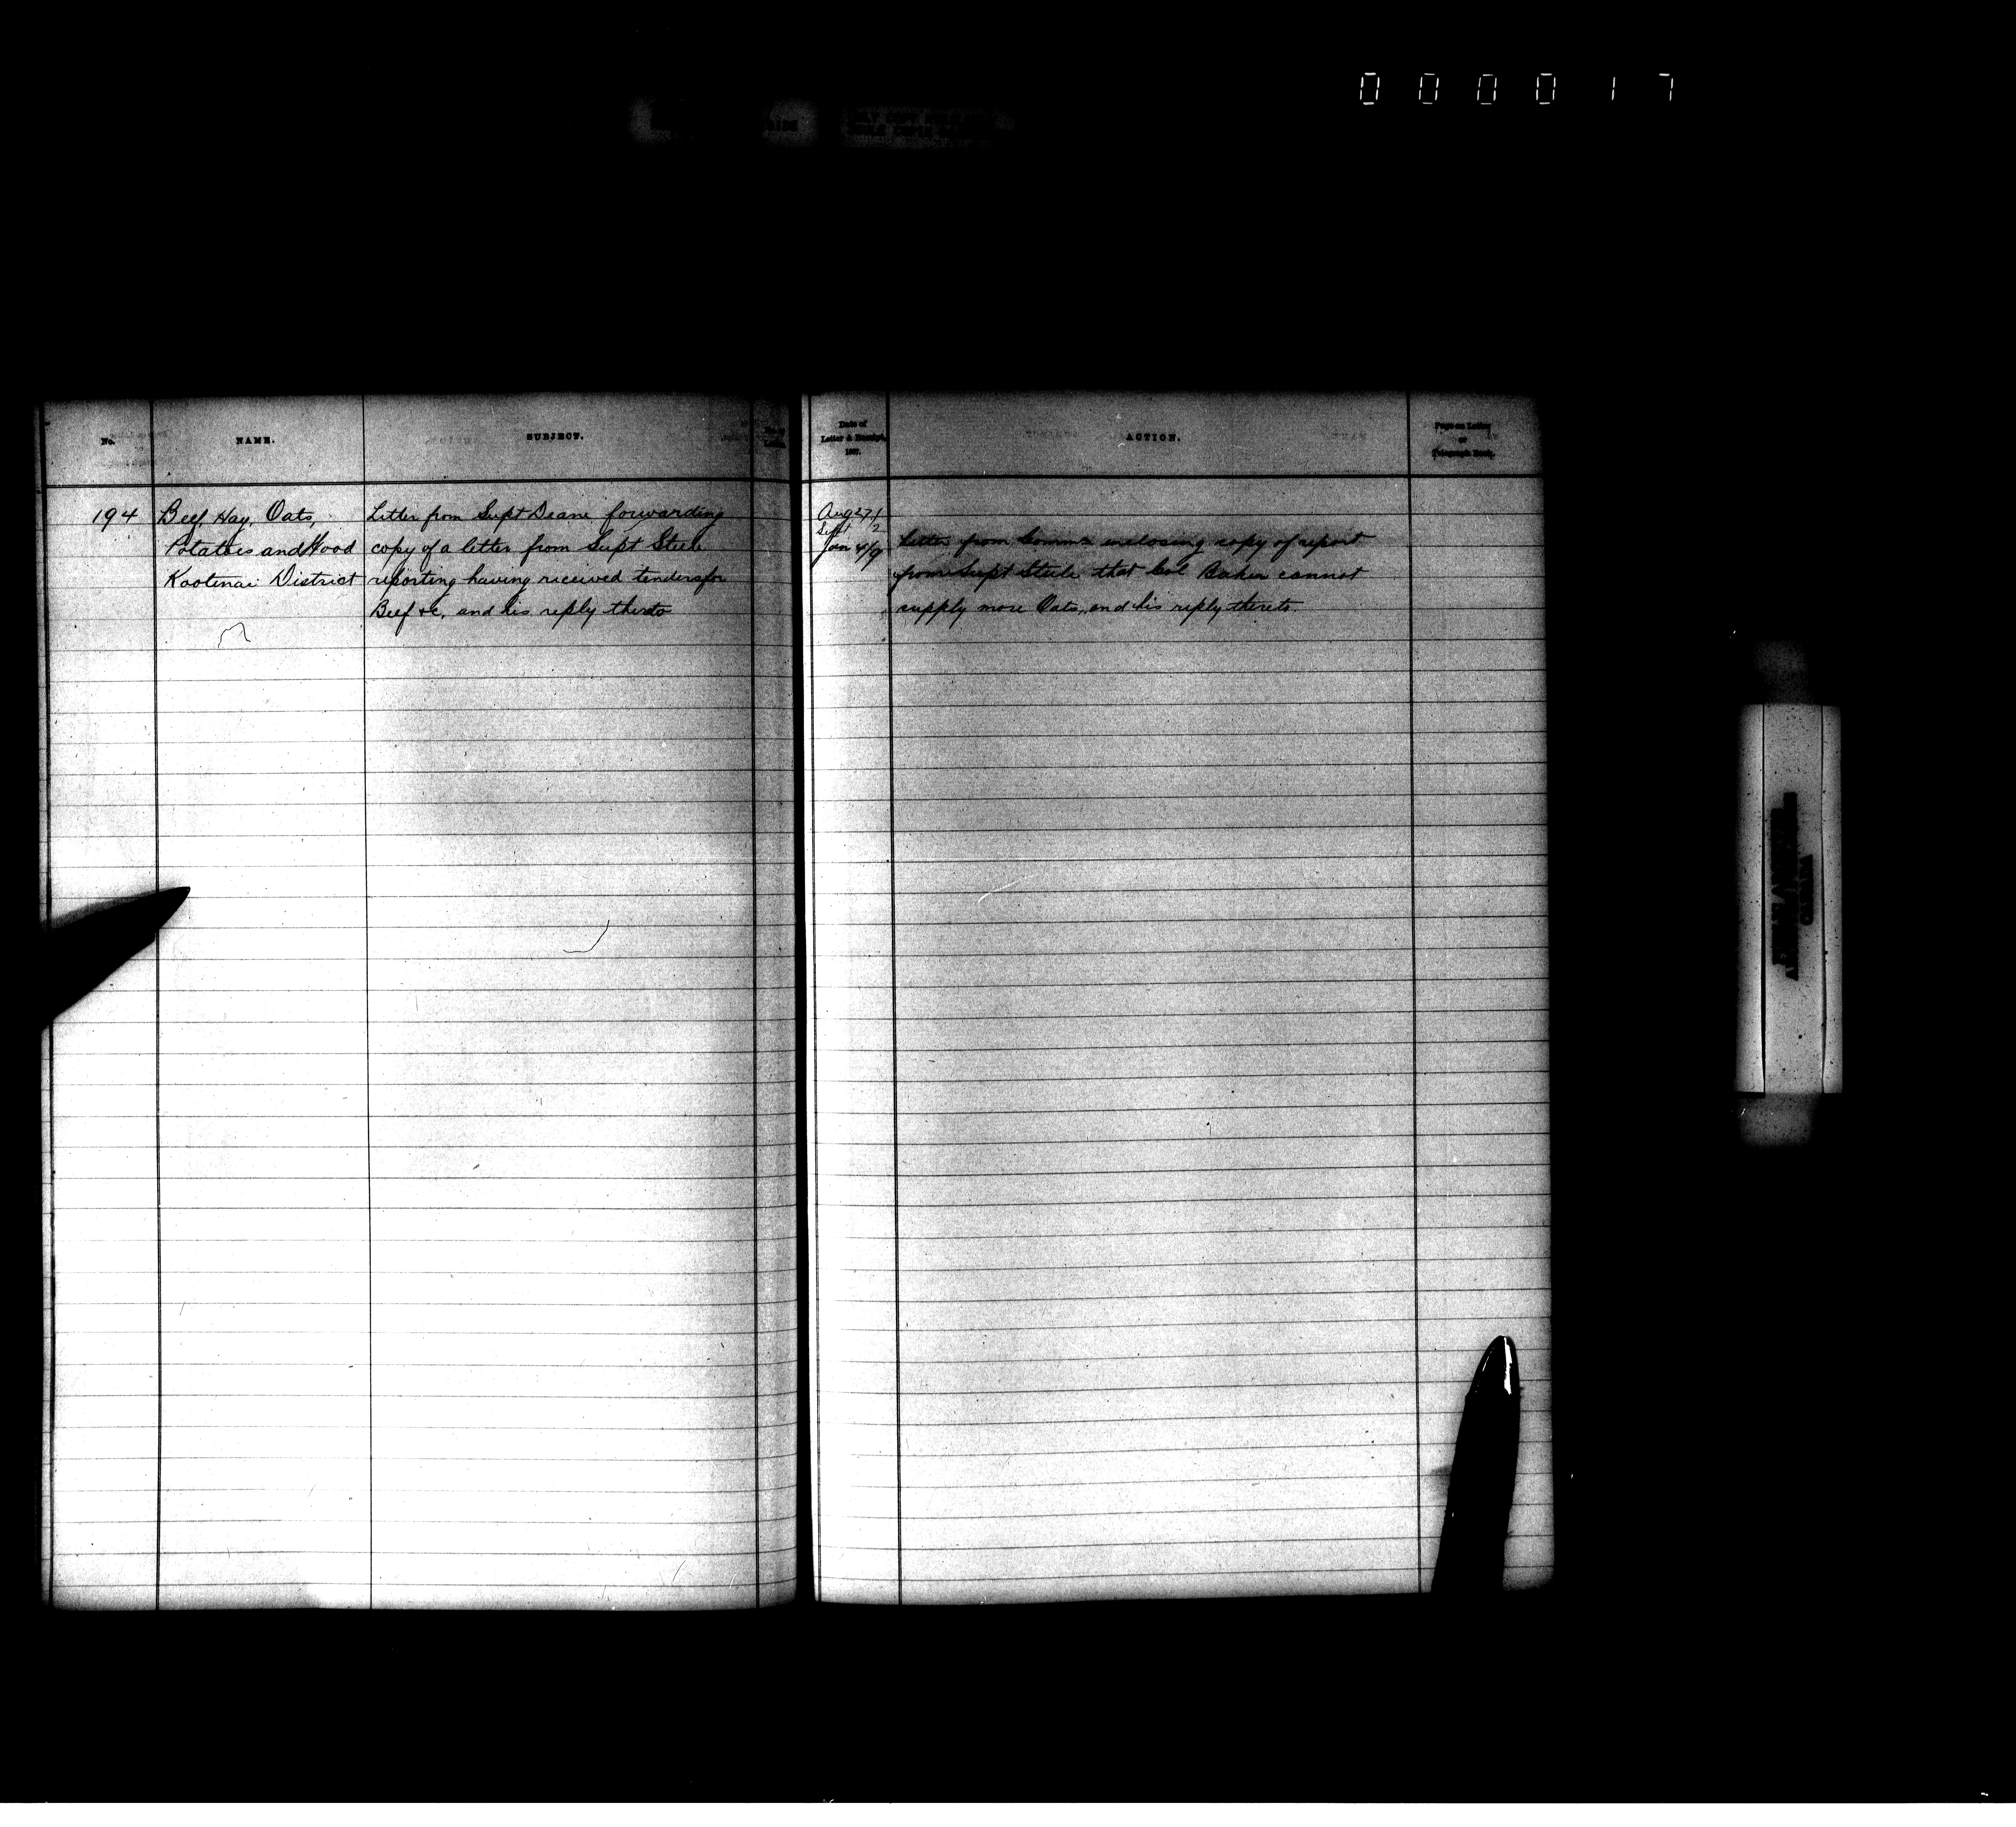 0 0 0 0 1 7
No.
NAME.
SUBJECT.
Date of
Letter & Receipt,
1887.
ACTION.
Page on Letter
or
Telegraph Book.
194
Beef, Hay, Oats,
Potatoes and Wood
Kootenai District
Letter from Supt Deane forwarding
copy of a letter from Supt Steele
reporting having received tenders for
Beef &c, and his reply thereto
Aug 27/
Sept 2
Jan 4/9
Letter from Commr enclosing copy of report
from Supt Steele that Col Baker cannot
supply more Oats, and his reply thereto.